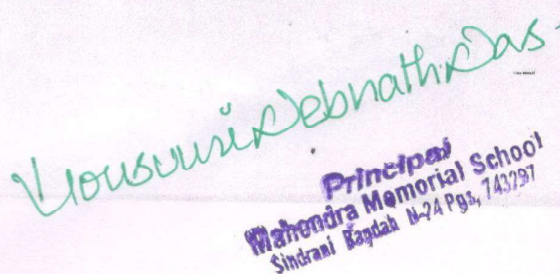 Debnath Das
Principal
Mahendra Memorial School
Sindrani Bagdah N-24 Pgs, 743297